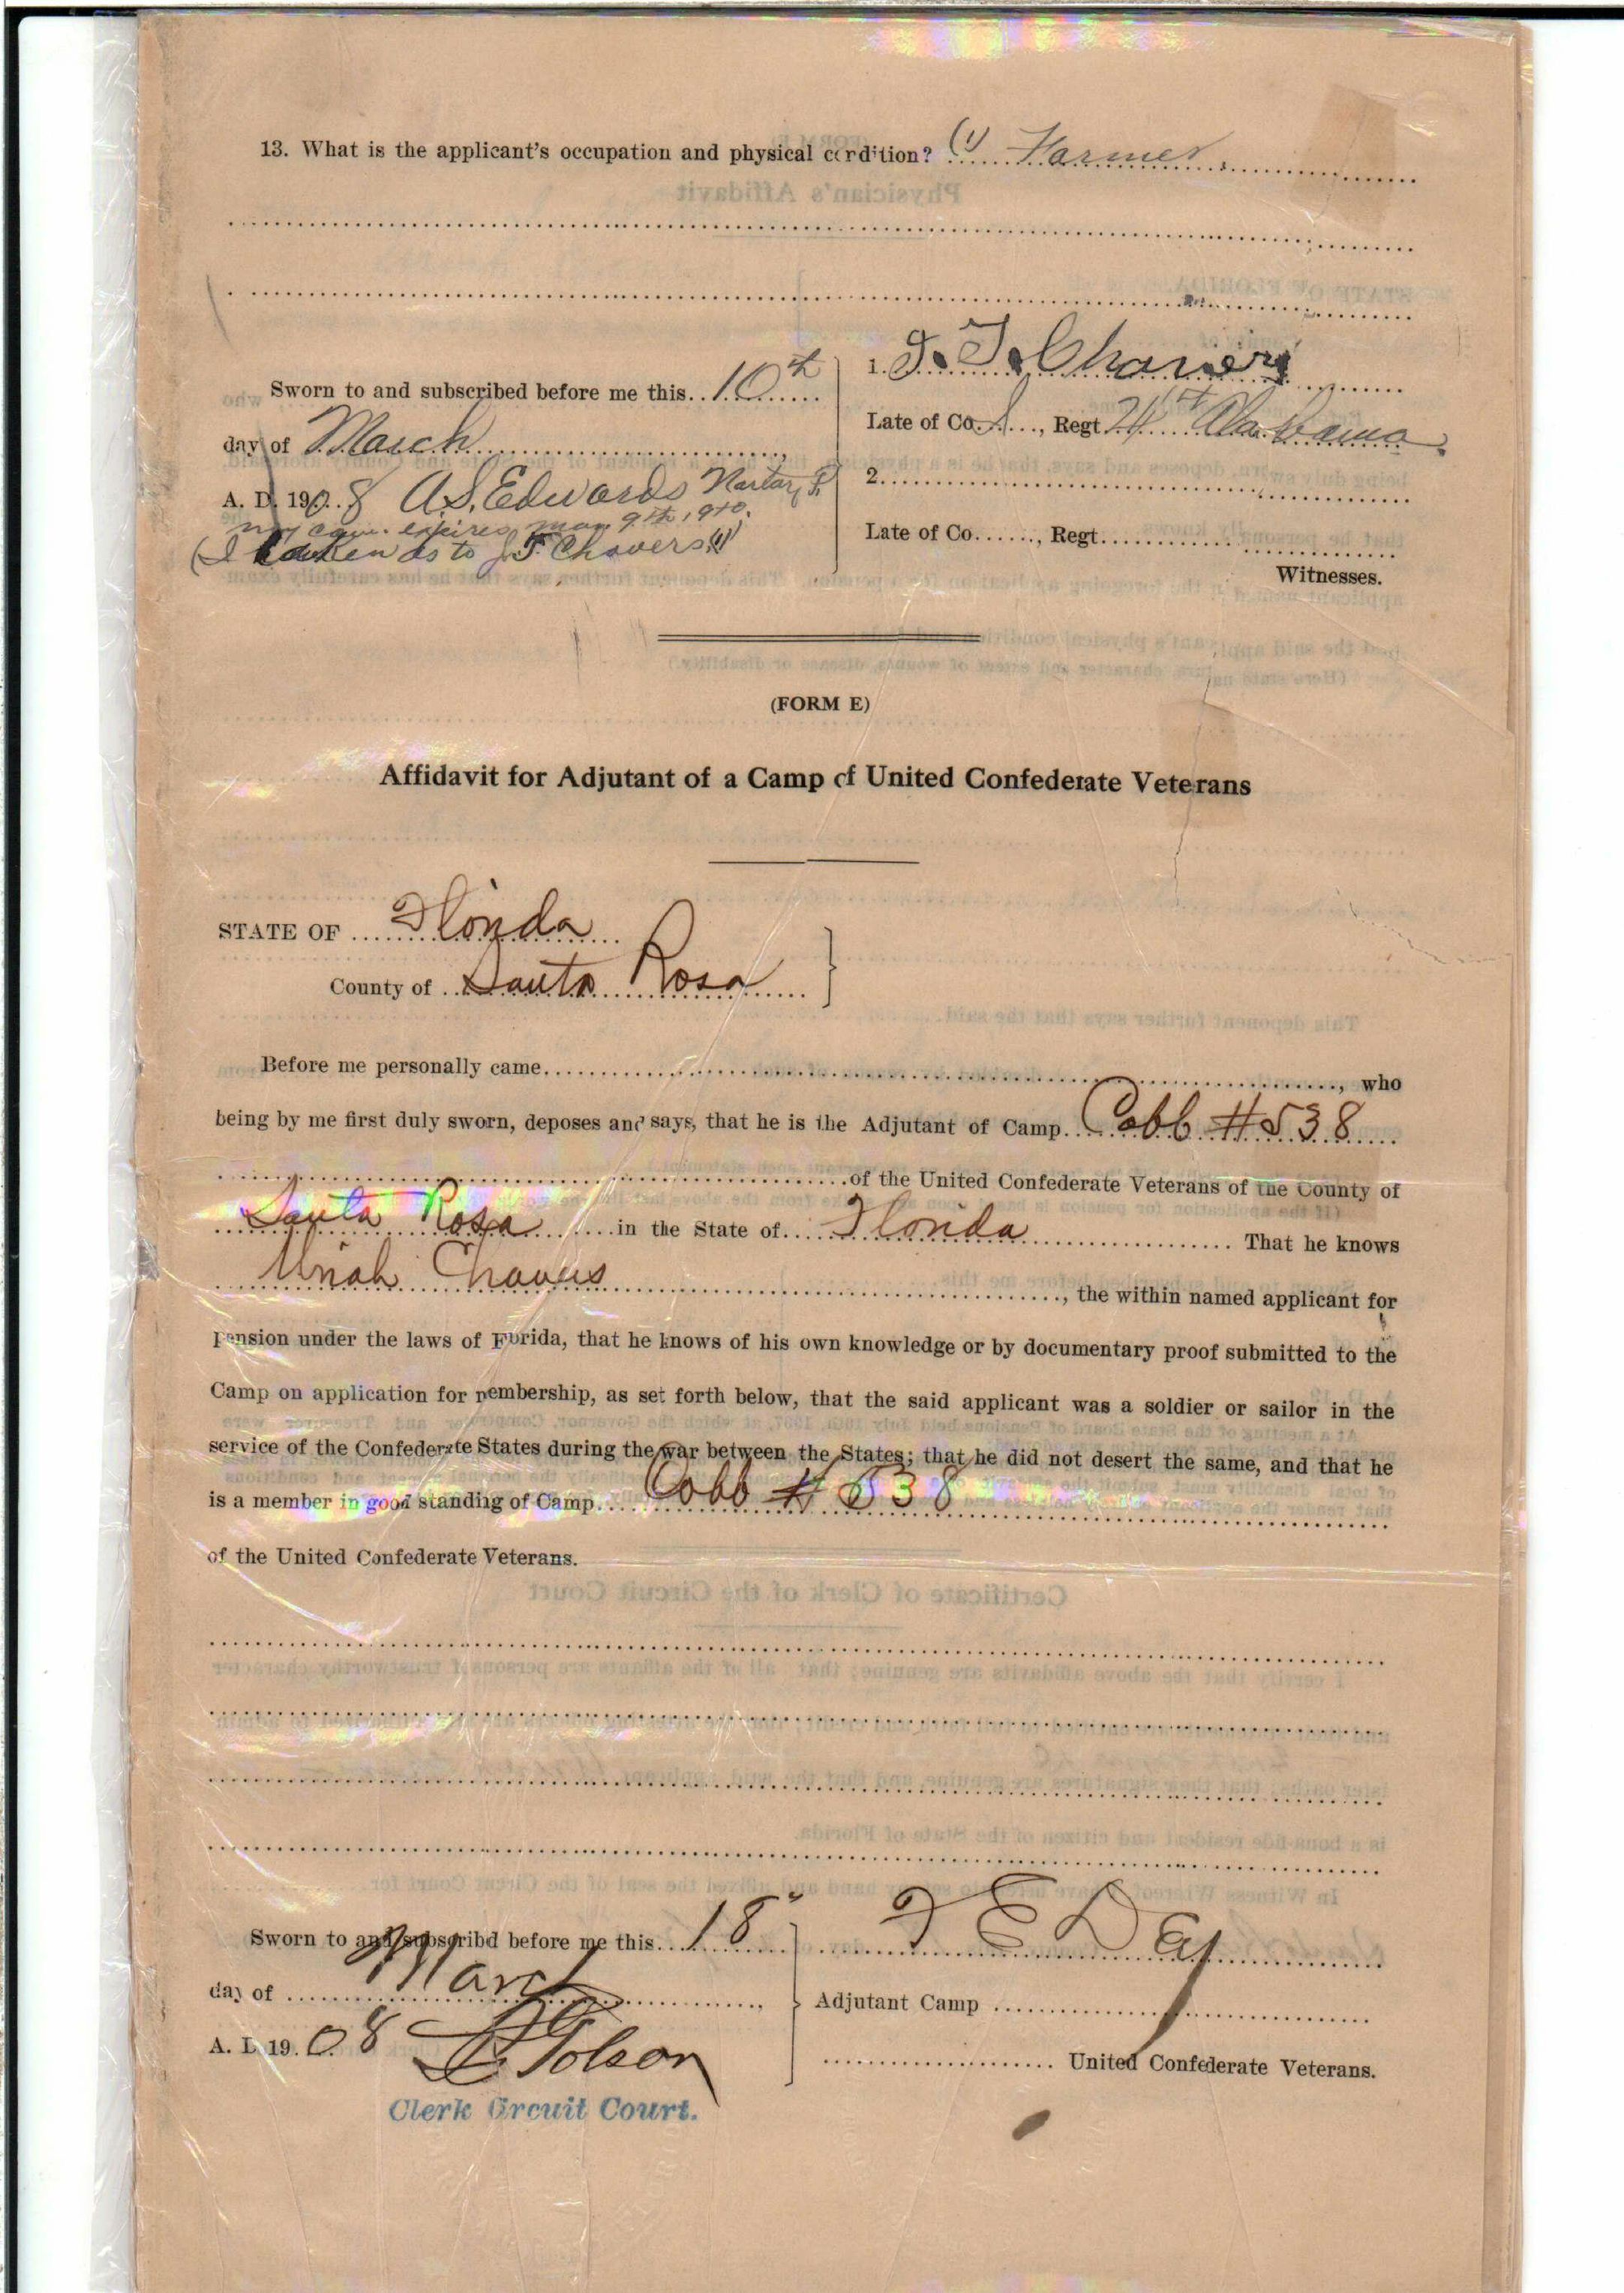 13. What is the applicant's occupation and physical condition? (1) Farmer
Sworn to and subscribed before me this 10th
day of March
A. D. 1908 A.S. Edwards Notary P.
my com. expires mar 9th, 1910.
( taken as to J F Chavers (1))
1. J. T. Chavers
Late of Co. , Regt Alabama
2.
Late of Co. , Regt.
Witnesses.
(FORM E)
Affidavit for Adjutant of a Camp of United Confederate Veterans
STATE OF Florida
County of Santa Rosa
Before me personally came , who
being by me first duly sworn, deposes and says, that he is the Adjutant of Camp Cobb #538
of the United Confederate Veterans of the County of
Santa Rosa in the State of Florida That he knows
Uriah Chavers , the within named applicant for
pension under the laws of Florida, that he knows of his own knowledge or by documentary proof submitted to the
Camp on application for membership, as set forth below, that the said applicant was a soldier or sailor in the
service of the Confederate States during the war between the States; that he did not desert the same, and that he
is a member in good standing of Camp Cobb # 538
of the United Confederate Veterans.
Sworn to and subscribd before me this 18"
day of March ,
A. D. 19 08 Tolson
Clerk Circuit Court.
F E Dey
Adjutant Camp
United Confederate Veterans.